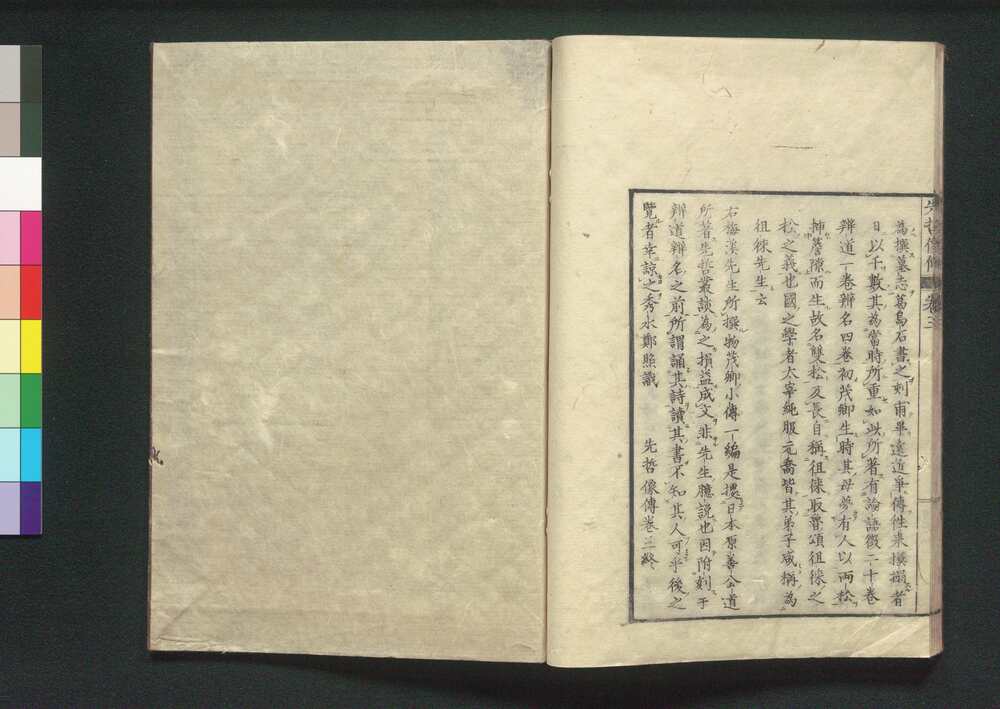 先哲像傳 卷三
為撰墓志葛烏石書之刻甫畢遠近爭傳往來摸搨者
日以千數其為當時所重如此所著有論語徵二十卷
辨道一卷辨名四卷初茂卿生時其母夢有人以兩松
挿簷隙而生故名雙松及長自稱徂徠取魯頌徂徠之
松之義也國之學者太宰純服元喬皆其弟子咸稱為
徂徠先生云
右梅溪先生所撰物茂卿小傳一編是摭日本原善公道
所著先哲叢談為之損益成文非先生臆說也因附刻于
辨道辨名之前所謂誦其詩讀其書不知其人可乎後之
覽者幸諒之秀水鄭照識
先哲像傳卷三終